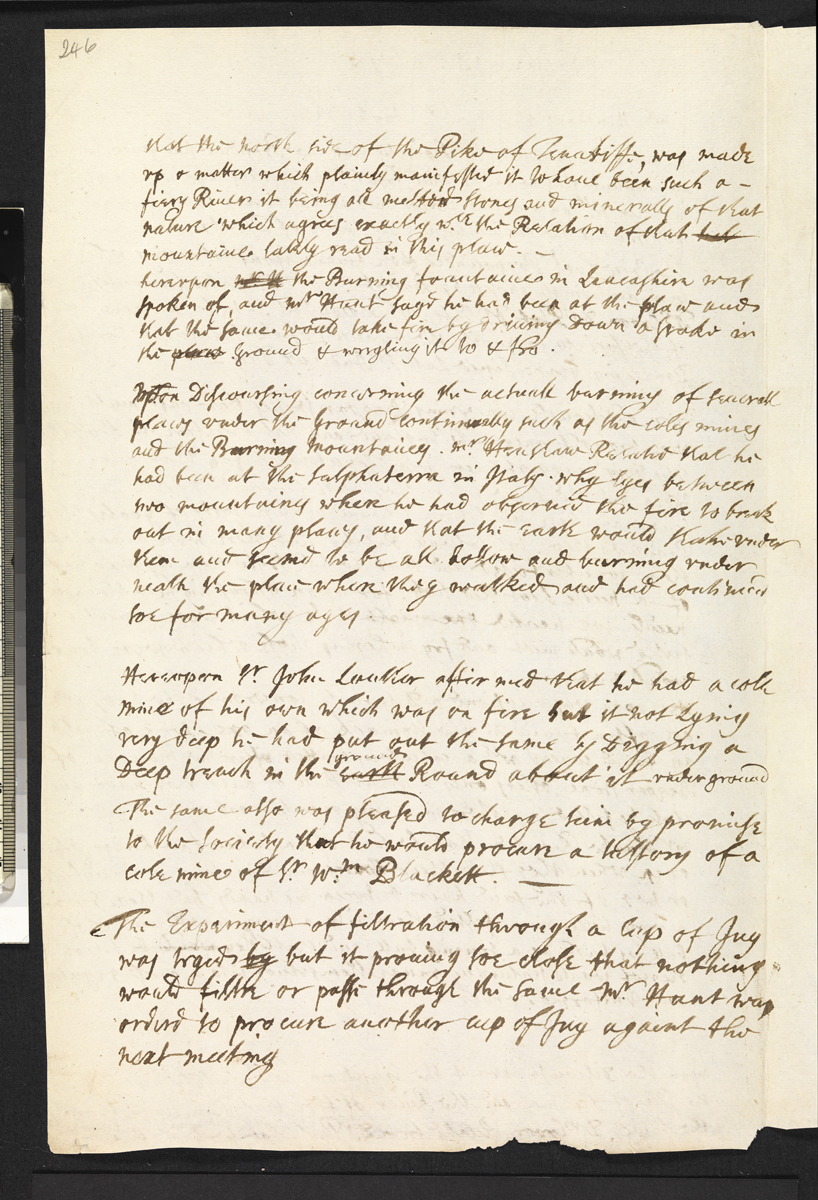 246
that the north side of the Pike of Tenariffe, was made
vp o matter which plainly manifested it to haue been such a -
fiery River it being all melted stones and mineralls of that
nature which agrees exactly wth the Relation of that
mountaine lately read in this place. -
herevpon the Burning fountaine in Lancashire was
spoken of, and mr Hunt sayd he had been at the place and
that the same would take fire by driuing Down a spade in
the place ground & wrigling it to & fro.
Vpon Discoursing concerning the actuall burning of seuerall
places vnder the ground continually such as the coles mines
and the Burning mountaines. mr Henshaw Related that he
had been at the sulphaterra in Italy. why lyes between
two mountaines where he had obserued the fire to break
out in many places, and that the earth would shake vnder
them and seemd to be all hollow and burning vnder
neath the place where they walked and had continued
soe for many ages.
Herevpon Sr John Lowther affirmed that he had a cole
mine of his own which was on fire but it not Lying
very deep he had put out the same by Digging a
Deep trench in the earth ground Round about it vnder ground
The same also was pleased to charge him by promise
to the Society that he would procure a history of a
cole mine of Sr Wm. Blackett. —
The Experiment of filtration through a Cup of Iuy
was tryed by but it prouing soe close that nothing
would filtre or passe through the same mr Hunt was
orderd to procure another cup of Iuy against the
next meeting